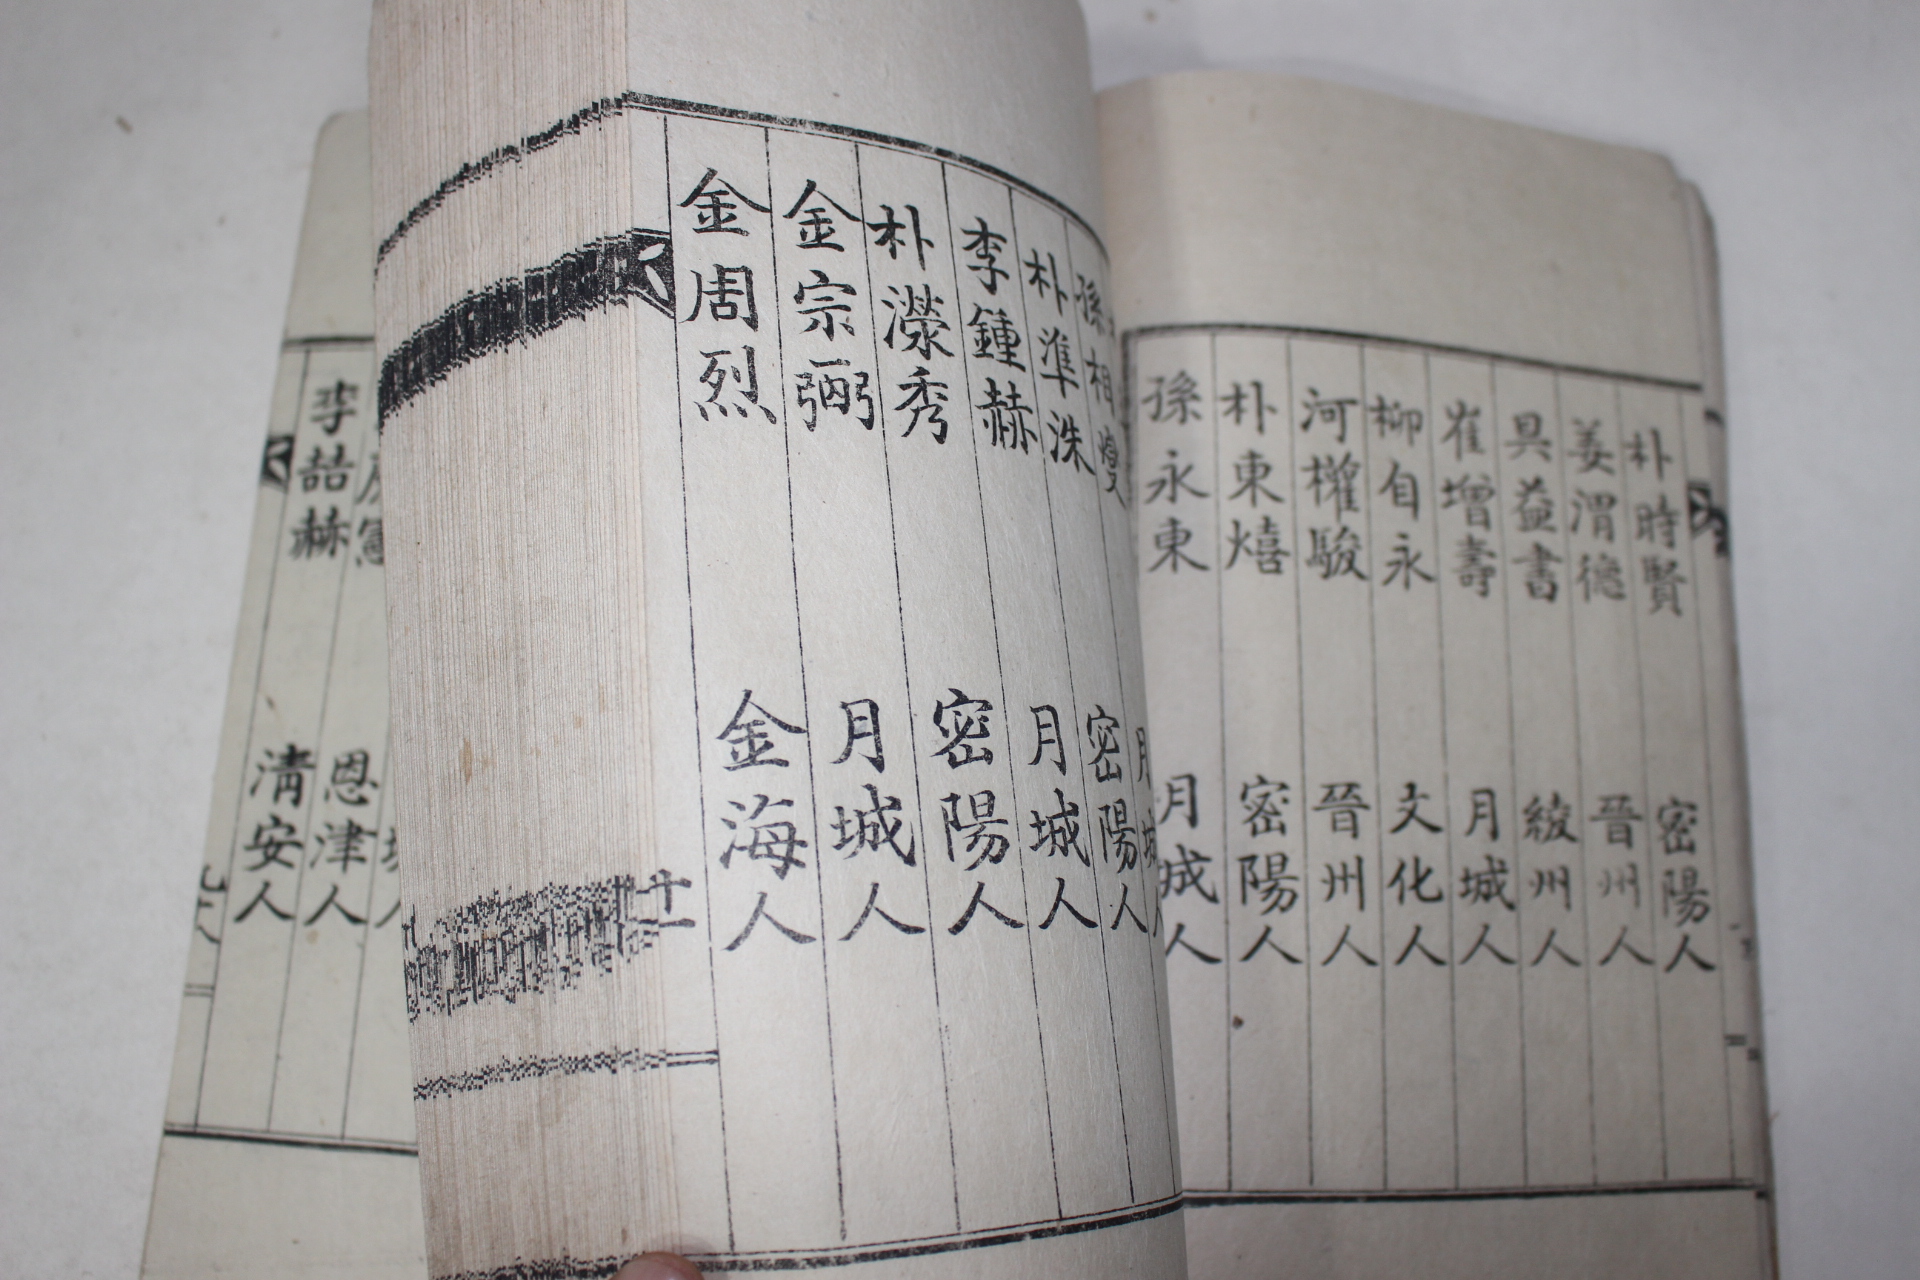 朴時賢 密陽人
姜渭德 晉州人
具益書 綾州人
崔增壽 月城人
柳自永 文化人
河權駿 晉州人
朴東熺 密陽人
孫永東 月城人
孫相燮 月城人
朴準洙 密陽人
李鍾赫 月城人
朴濚秀 密陽人
金宗弼 月城人
金周烈 金海人
十一
恩津人
李喆赫 清安人